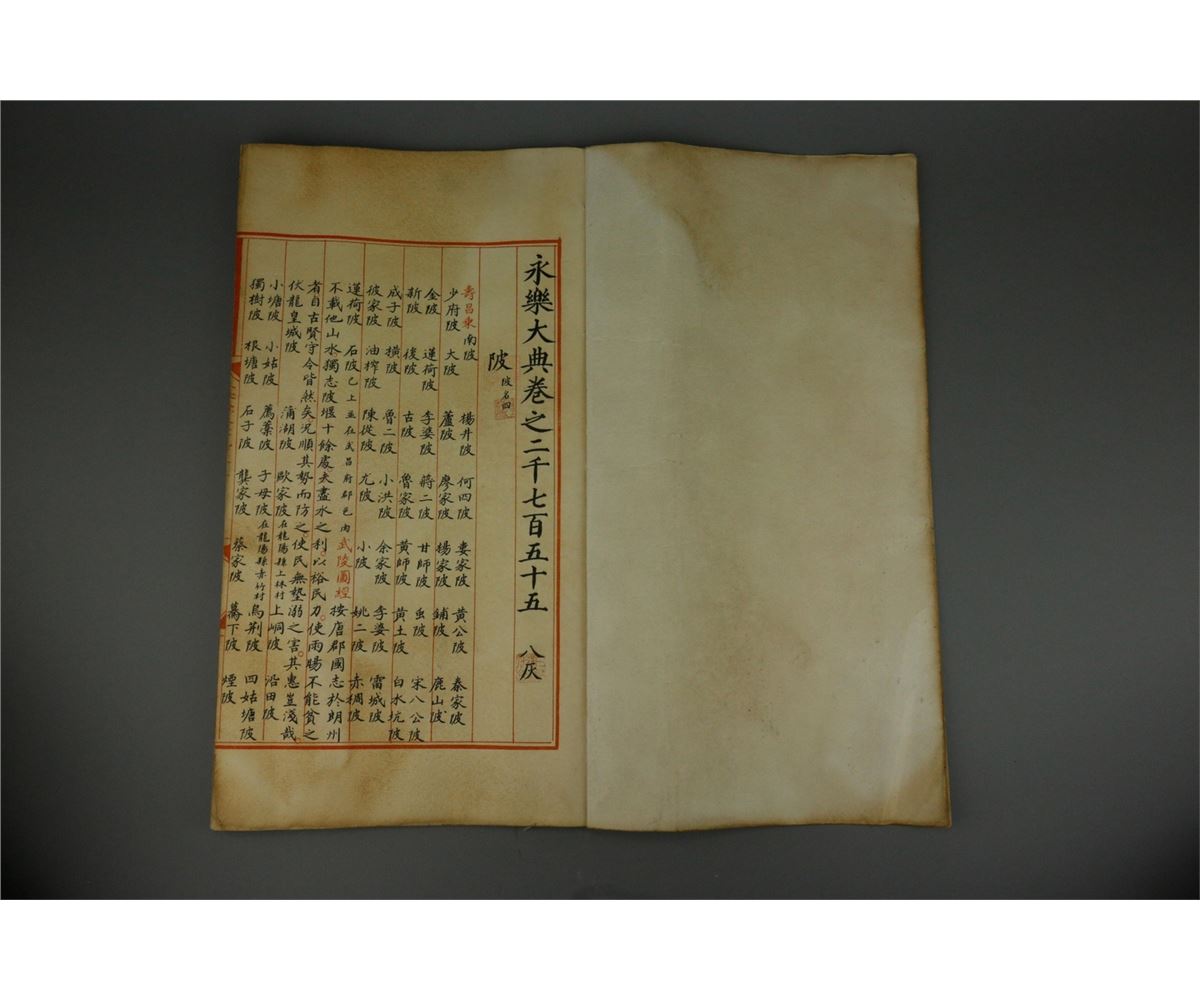 永樂大典卷之二千七百五十五 八灰
陂 陂名四
壽昌乘 南陂 楊井陂 何四陂 婁家陂 黃公陂 秦家陂
少府陂 大陂 蘆陂 廖家陂 楊家陂 鋪陂 鹿山陂
金陂 蓮荷陂 李婆陂 蔣二陂 甘師陂 䖝陂 宋八公陂
新陂 後陂 古陂 魯家陂 黃師陂 黃土陂 白水坑陂
成子陂 橫陂 魯二陂 小洪陂 余家陂 李婆陂 雷城陂
彼家陂 油榨陂 陳從陂 尤陂 小陂 姚二陂 赤稠陂
蓮荷陂 石陂 已上並在武昌府郡邑內 武陵圖經 按唐郡國志於朗州
不載他山水獨志陂堰十餘處夫盡水之利。以裕民力。使雨暘不能貧之
者自古賢守令皆然矣況順其勢而防之使民無墊溺之害。其惠豈淺哉
伏龍皇城陂 蒲湖陂 歐家陂 在龍陽縣上林村 上峒陂 沿田陂
小塘陂 小姑陂 陂 子母陂 在龍陽縣赤竹村 烏荆陂 四姑塘陂
獨樹陂 根塘陂 石子陂 龔家陂 蔡家陂 驀下陂 煙陂